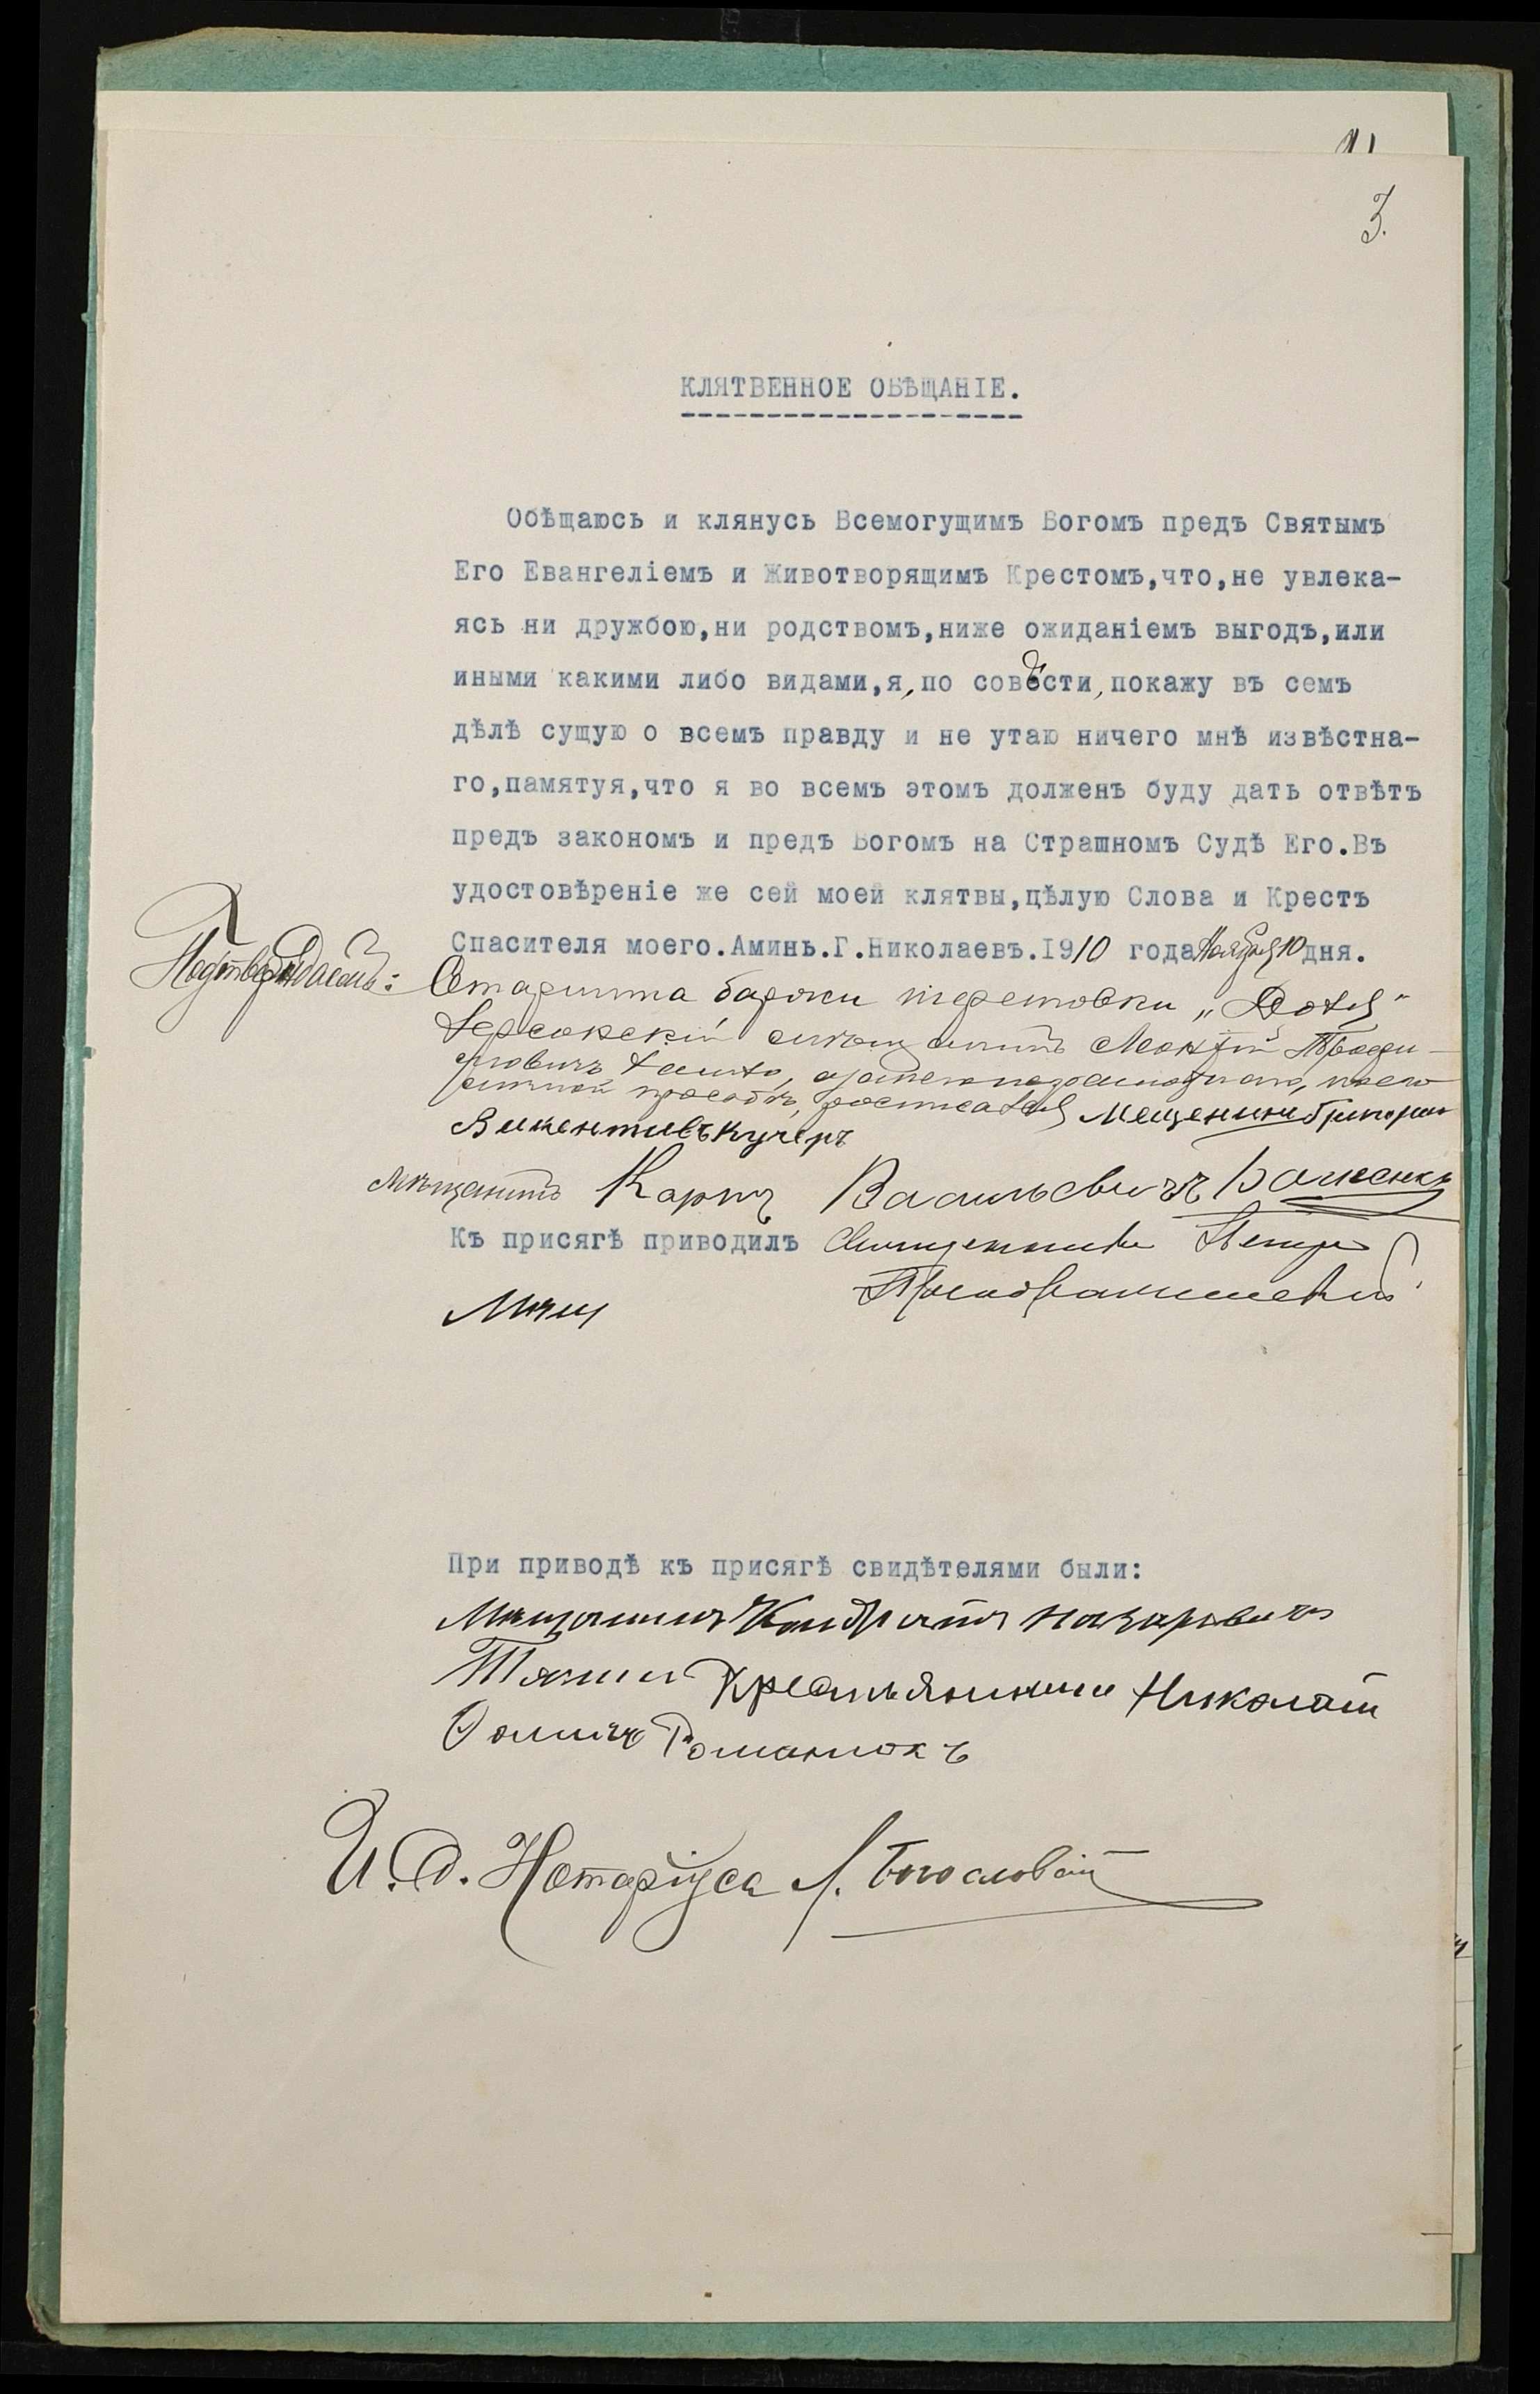 3.
КЛЯТВЕННОЕ ОБѢЩАНІЕ.
Обѣщаюсь и клянусь Всемогущимъ Богомъ предъ Святымъ
Его Евангеліемъ и Животворящимъ Крестомъ,что,не увлека-
ясь ни дружбою,ни родствомъ,ниже ожиданіемъ выгодъ,или
иными какими либо видами,я,по совѣсти,покажу въ семъ
дѣлѣ сущую о всемъ правду и не утаю ничего мнѣ извѣстна-
го,памятуя,что я во всемъ этомъ долженъ буду дать отвѣтъ
предъ закономъ и предъ Богомъ на Страшномъ Судѣ Его.Въ
удостовѣреніе же сей моей клятвы,цѣлую Слова и Крестъ
Спасителя моего.Аминь.Г.Николаевъ.1910 года Ноября 10 дня.
Старшина баржи
Херсонскій мѣщанинъ
просьбѣ, Мещенинъ Григорій
Викентиевъ Кучеръ
Мѣщанинъ Карпъ Васильевичъ Баженкъ
Къ присягѣ приводилъ Священникъ Петръ
Мѣщ
При приводѣ къ присягѣ свидѣтелями были:
Мѣщанинъ Кондратъ Назаровичъ
Крестьянинъ Николай
Фомичъ Романюкъ
И. д. Нотаріуса Л. Богословскій